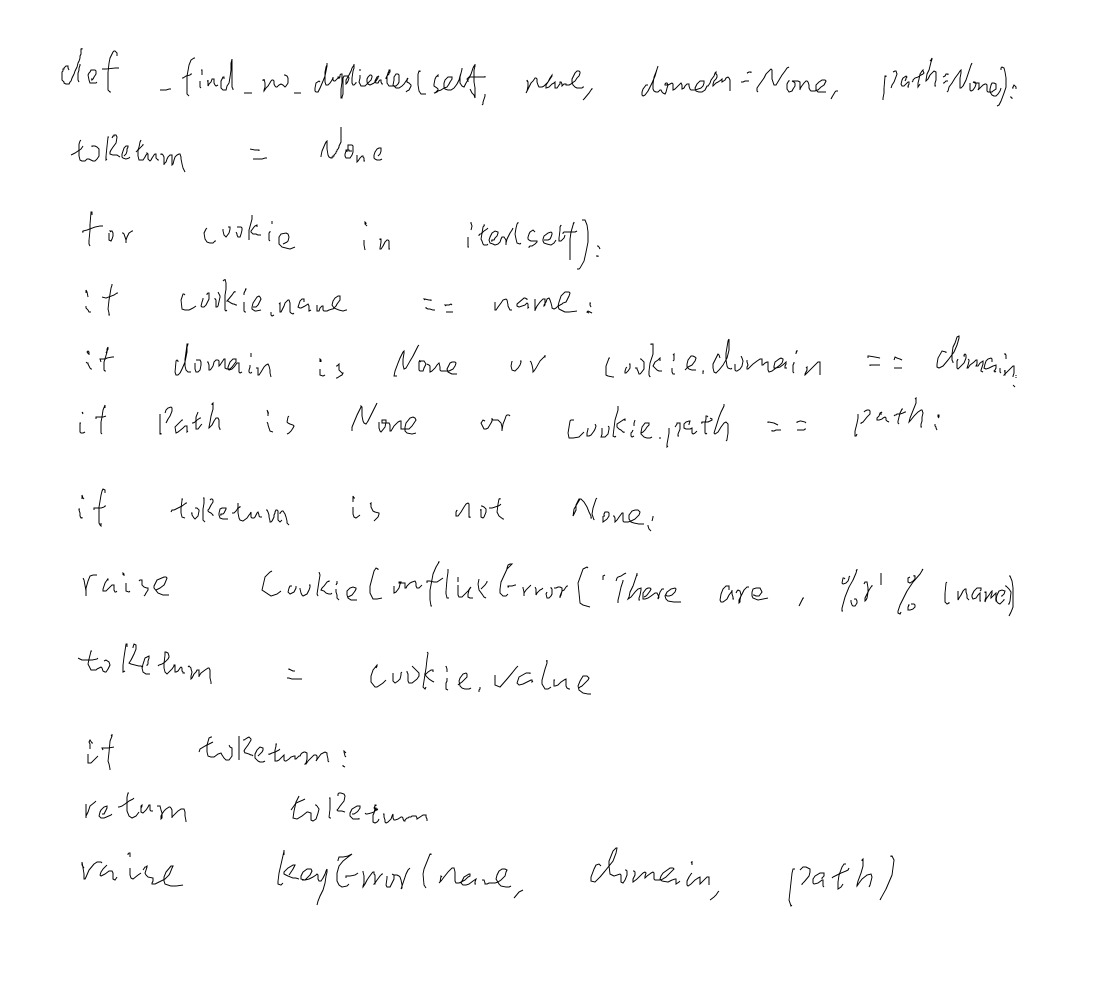 def _find_no_duplicates(self, name, domain=None, path=None):
toReturn = None
for cookie in iter(self):
if cookie.name == name:
if domain is None or cookie.domain == domain:
if Path is None or cookie.path == path:
if toReturn is not None:
raise CookieConflictError('There are , %r' % (name)
toReturn = cookie.value
if toReturn:
return toReturn
raise keyError(name, domain, path)